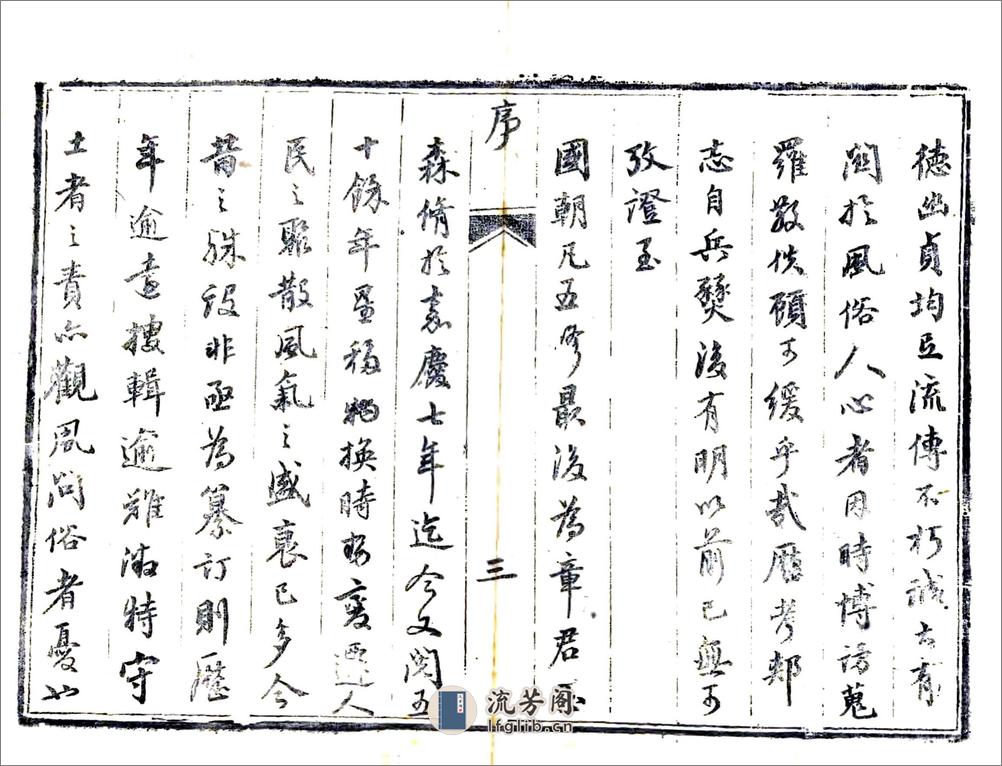 德幽貞均足流傳不朽誠大有
關於風俗人心者因時博訪蒐
羅散佚顧可緩乎哉歷考
志自兵燹後有明以前已無可
攷證至
國朝凡五修最後為章君
序 三
森脩於嘉慶七年迄今又閱五
十餘年星移物換時勢變遷人
民之聚散風氣之盛衰已多今
昔之殊設非亟為纂訂則歷
年逾遠搜輯逾難特守
土者之責亦觀風問俗者憂也
流芳阁
lfglib.cn